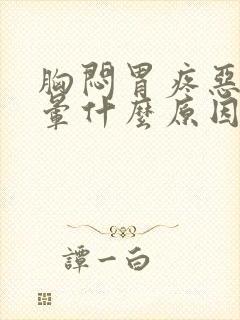 胸悶胃疼惡
暈什麼原因
譚一白